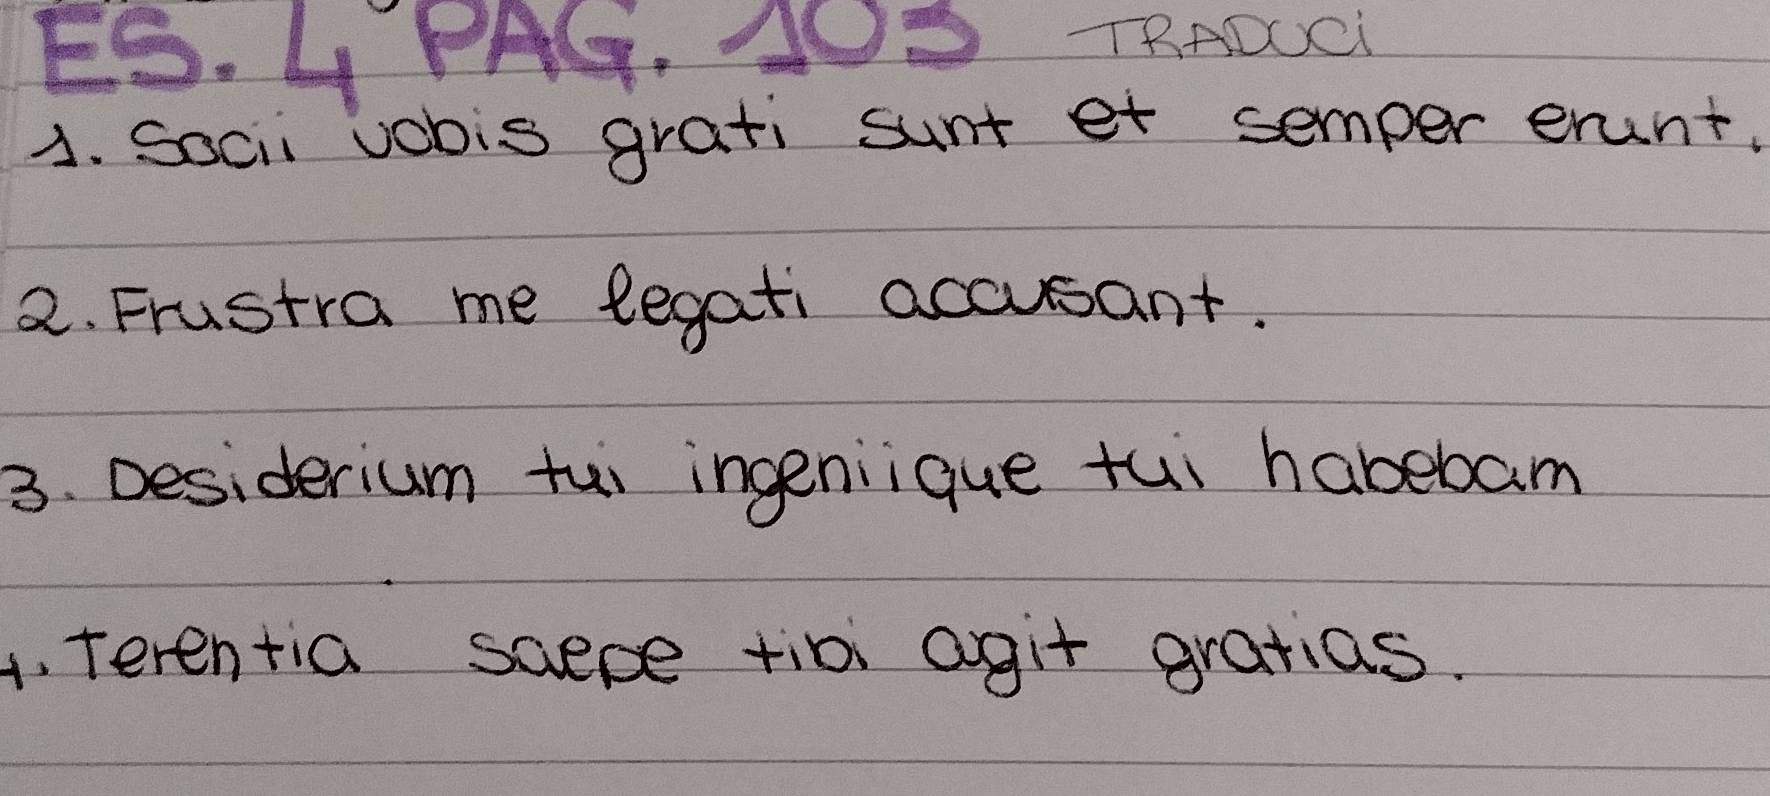 ES. 4 PAG. 103 TRADUCI
1. Socii vobis grati sunt et semper erunt.
2. Frustra me legati accusant.
3. Desiderium tui ingeniique tui habebam
4. Terentia saepe tibi agit gratias.